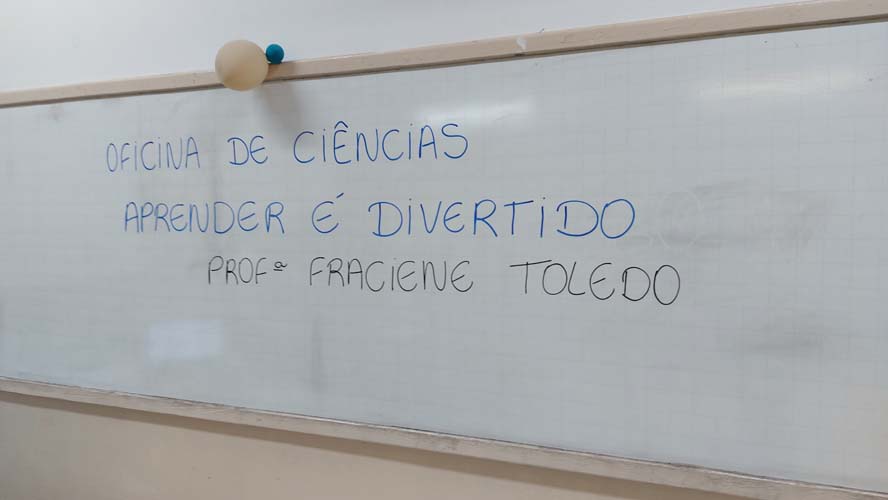 OFICINA DE CIÊNCIAS
APRENDER É DIVERTIDO
PROFª FRACIENE TOLEDO